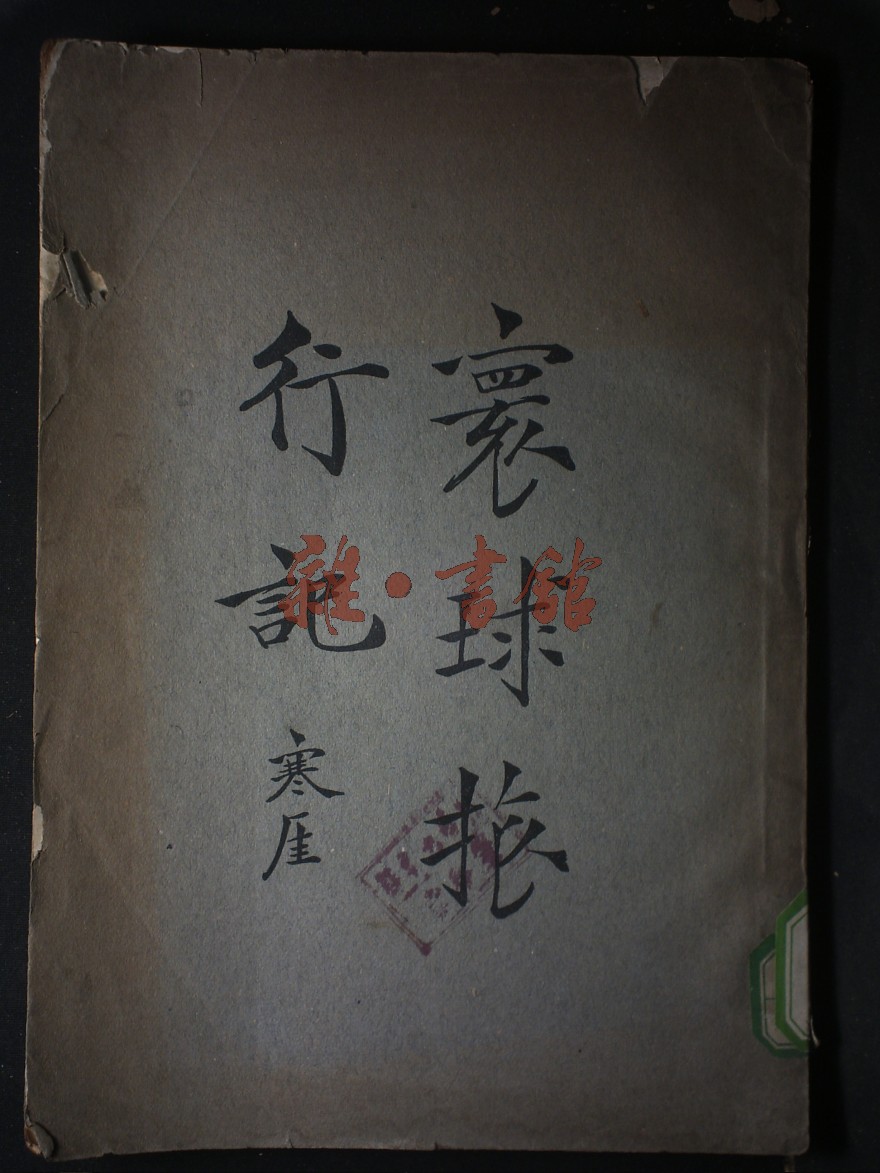 寰球旅
行記
寒厓
雜·書館